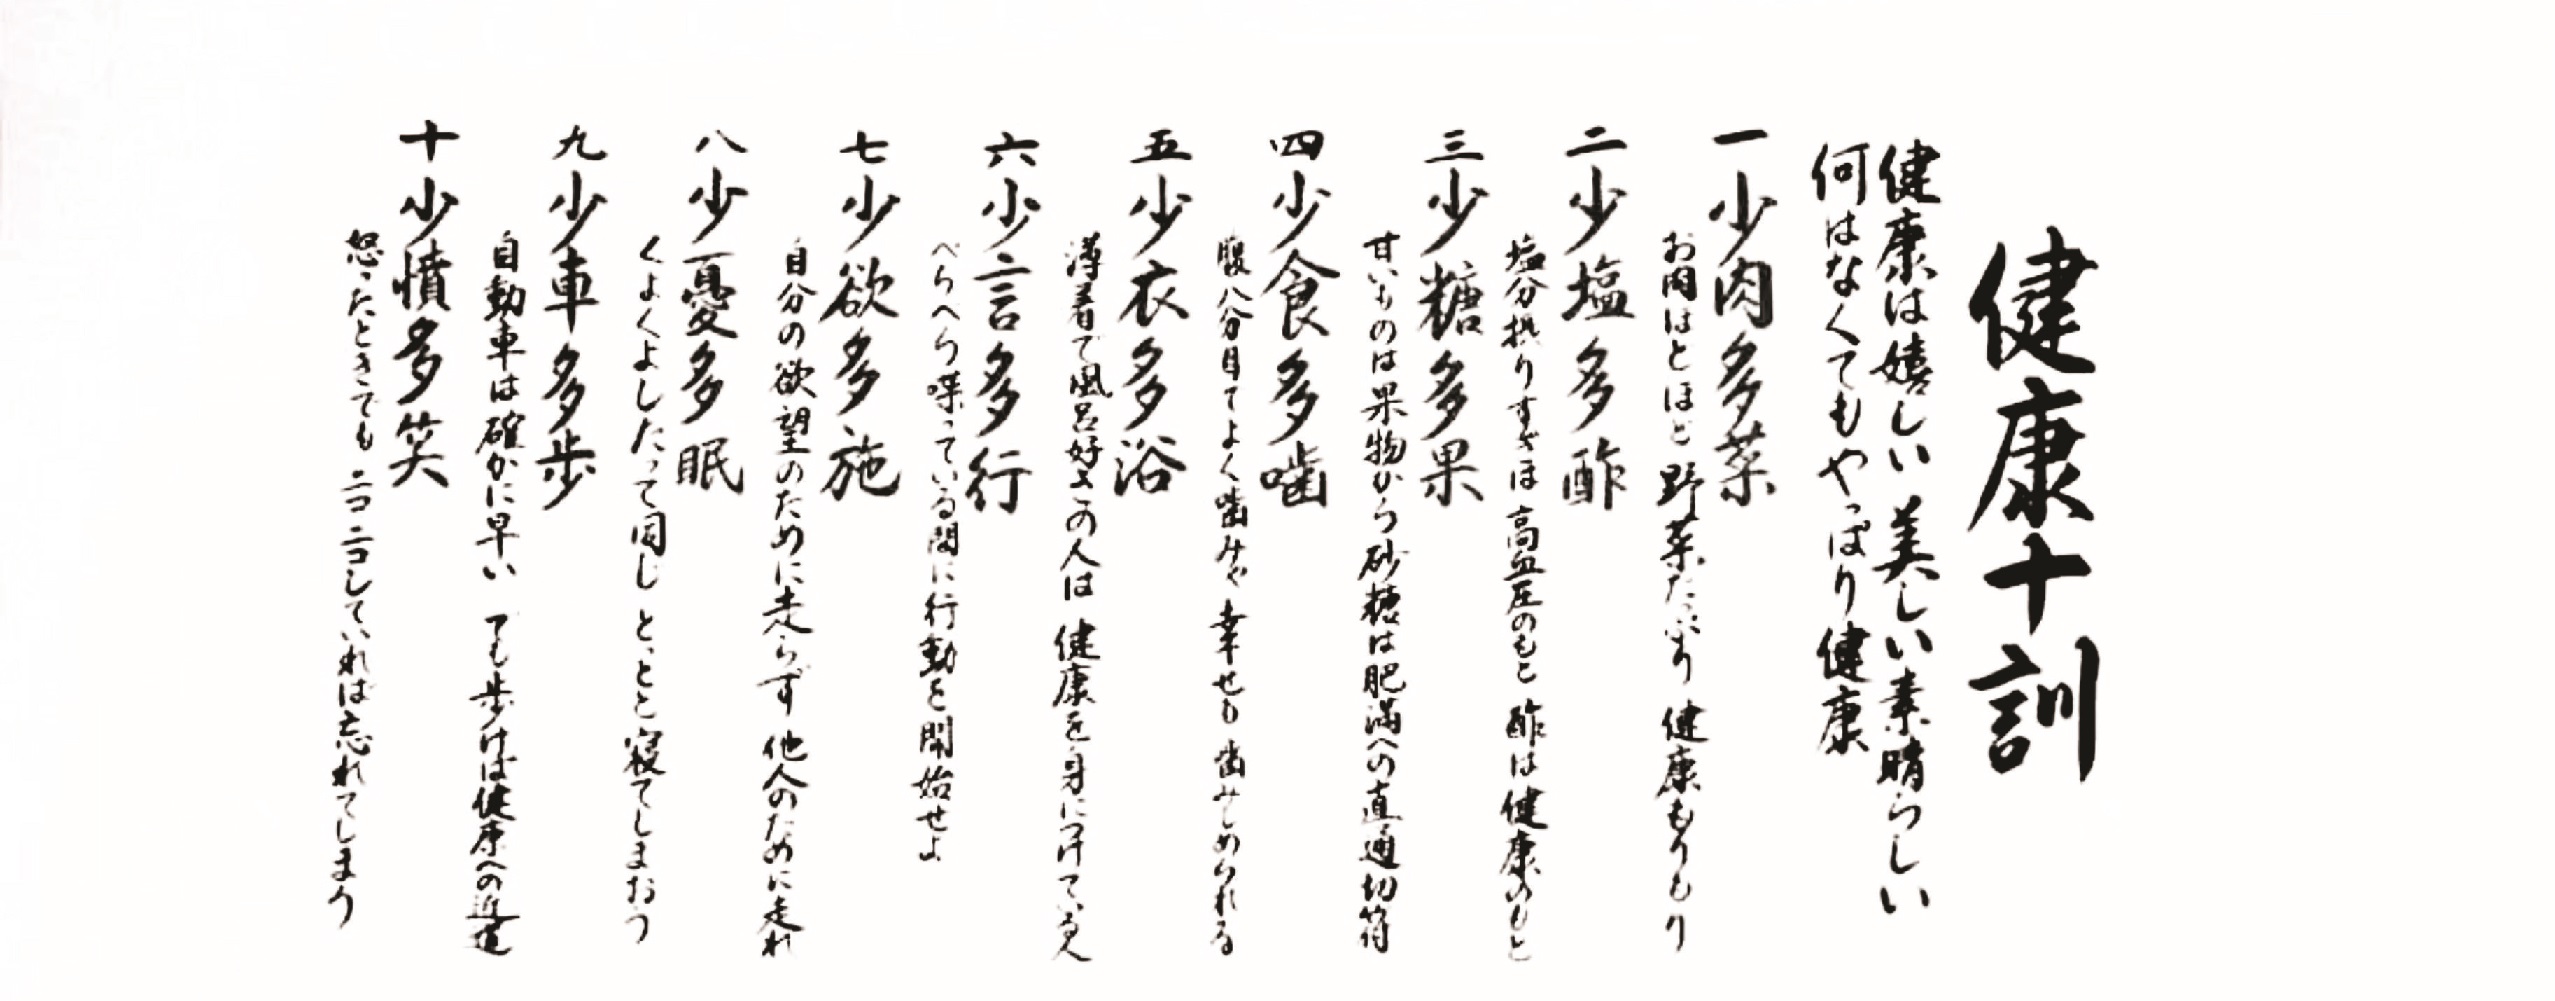 健康十訓
健康は嬉しい 美しい 素晴らしい
何はなくても やっぱり 健康
一 少肉多菜
お肉はとほど 野菜たっぷり 健康もりもり
二 少塩多酢
塩分摂りすぎは 高血圧のもと 酢は健康のもと
三 少糖多果
甘いものは果物から 砂糖は肥満への直通切符
四 少食多噛
腹八分目でよく噛みゃ 幸せも 歯みしめられる
五 少衣多浴
薄着で風呂好きの人は 健康を身に付けている人
六 少言多行
べらべら喋っている間に行動を開始せよ
七 少欲多施
自分の欲望のために走らず 他人のために走れ
八 少憂多眠
くよくよしたって同じ とっとと寝てしまおう
九 少車多歩
自動車は確かに早い でも歩けば健康への近道
十 少憤多笑
怒ったときでも ニコニコしていれば忘れてしまう